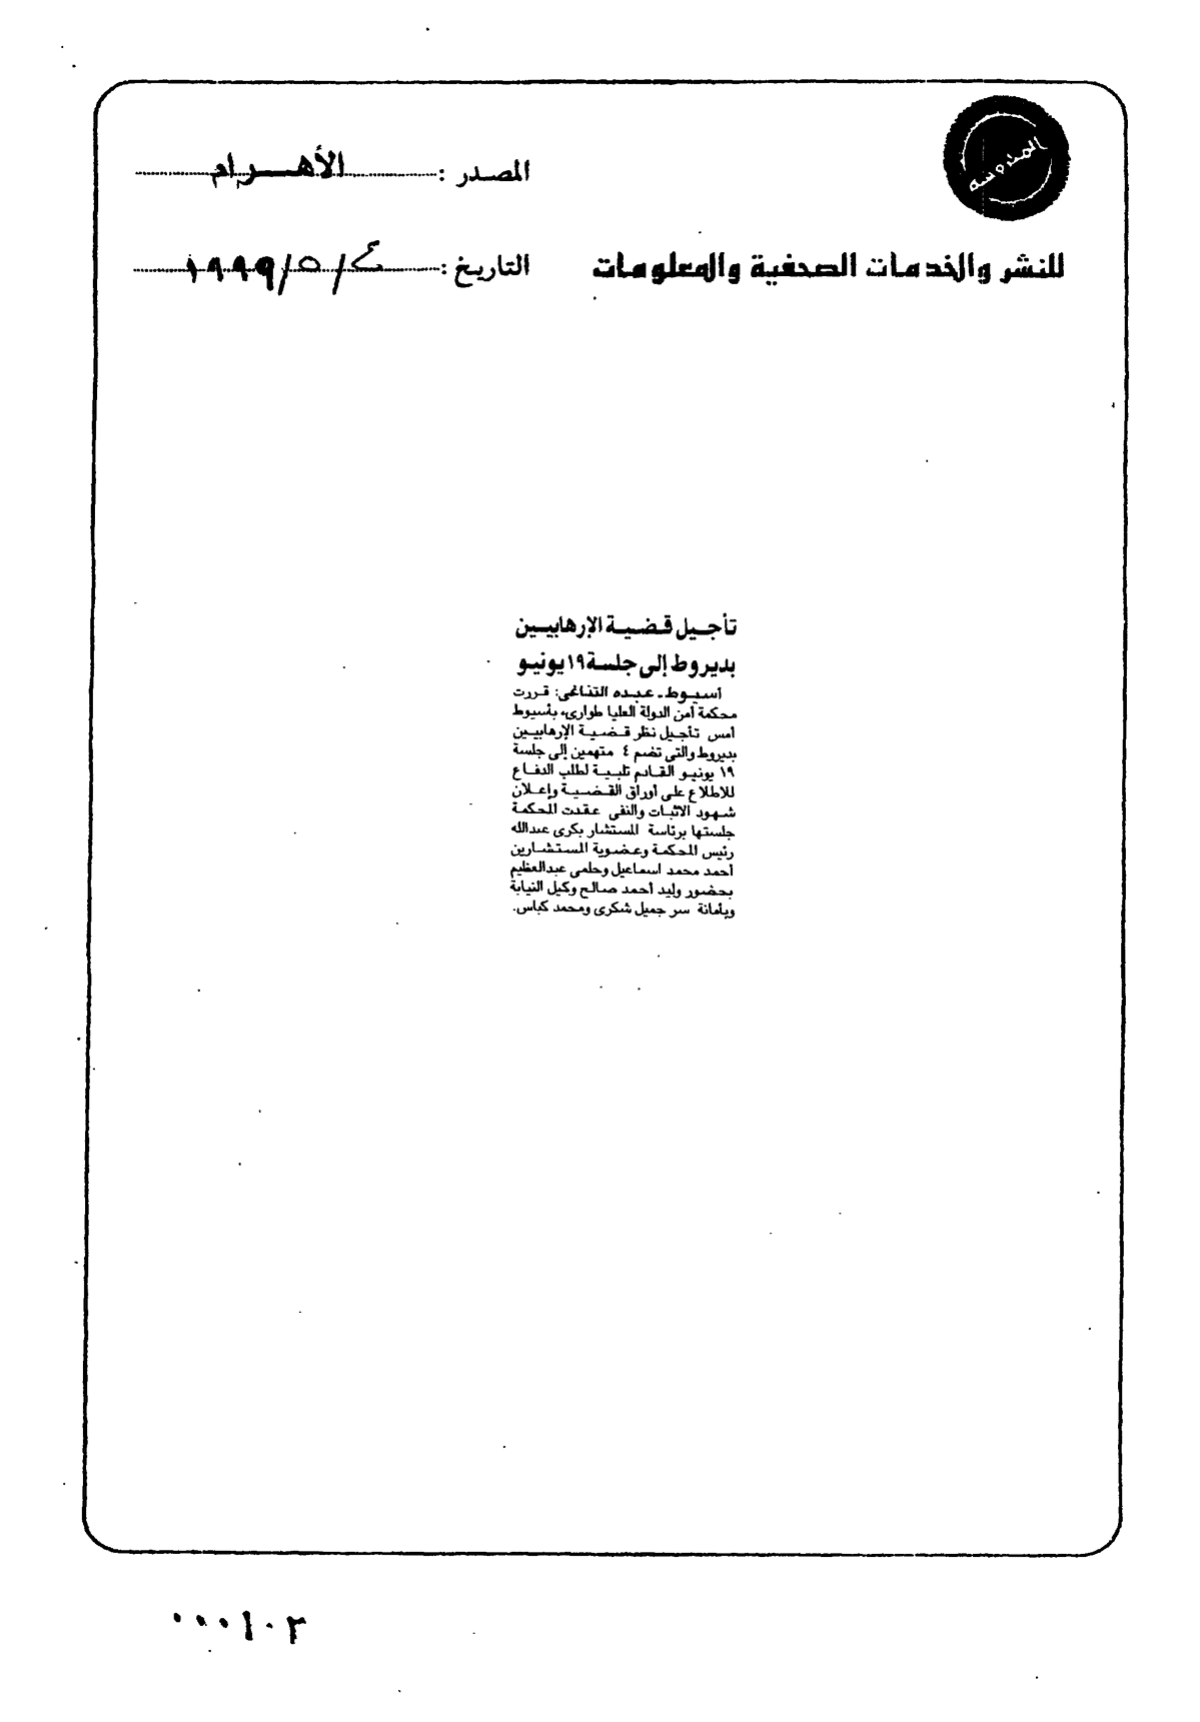 المحروسة
المصدر : الأهرام
للنشر والخدمات الصحفية والمعلومات
التاريخ : ٤ / ٥ / ١٩٩٩
تأجيل قضية الإرهابيين
بديروط إلى جلسة ١٩ يونيو
أسيوط ـ عبده التفاتحى: قررت
محكمة أمن الدولة العليا طوارىء بأسيوط
أمس تأجيل نظر قضية الإرهابيين
بديروط والتى تضم ٤ متهمين إلى جلسة
١٩ يونيو القادم تلبية لطلب الدفاع
للاطلاع على أوراق القضية وإعلان
شهود الاثبات والنفى عقدت المحكمة
جلستها برئاسة المستشار بكرى عبدالله
رئيس المحكمة وعضوية المستشارين
أحمد محمد اسماعيل وحلمى عبدالعظيم
بحضور وليد أحمد صالح وكيل النيابة
وبأمانة سر جميل شكرى ومحمد كباس.
٠٠٠١٠٣